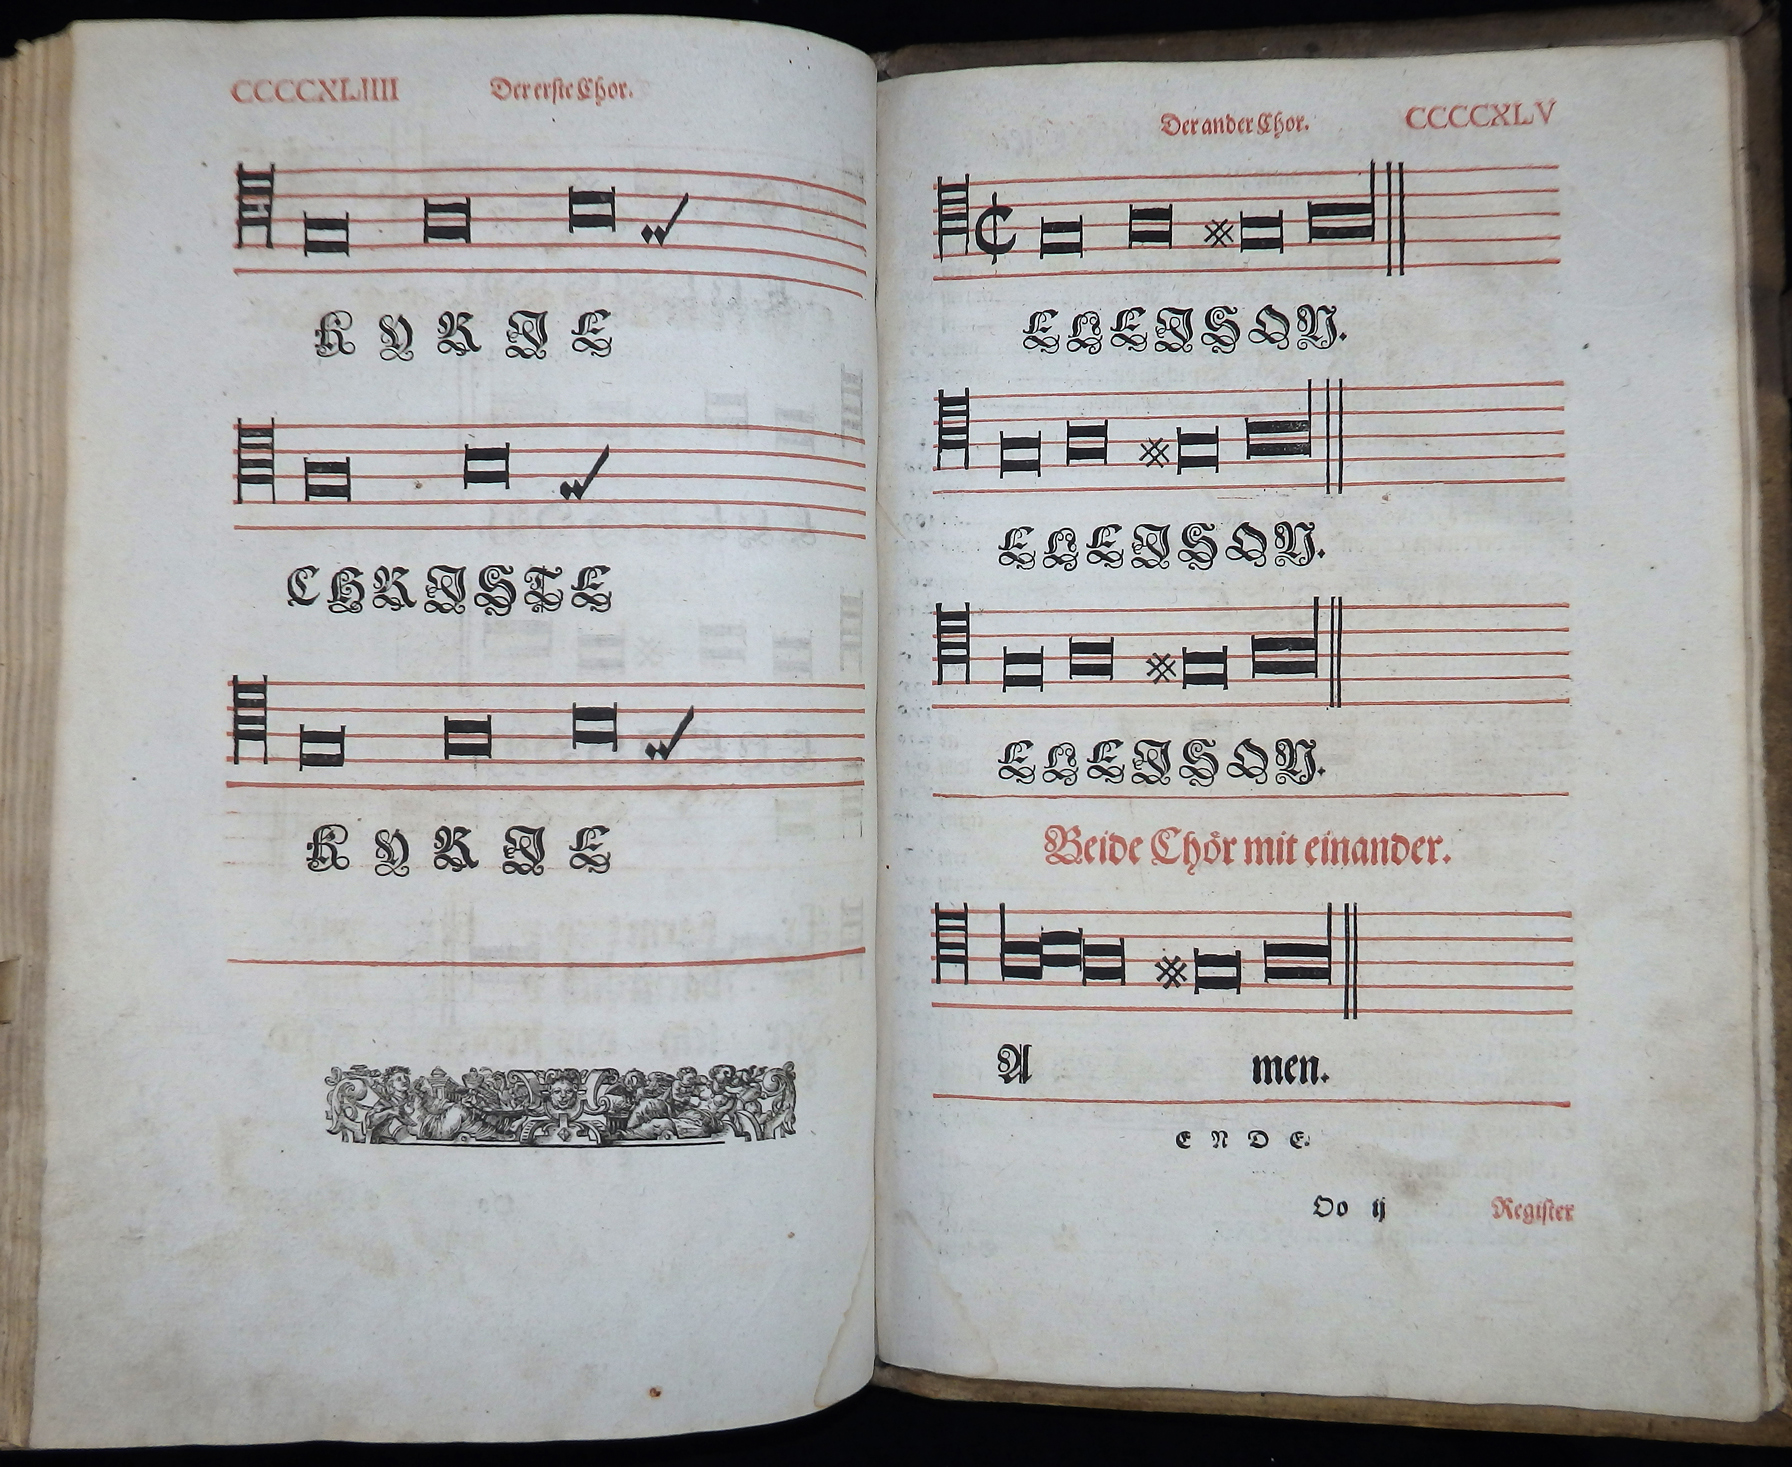 CCCCXLIIII Der erste Chor.
KYRIE
CHRISTE
KYRIE
Der ander Chor. CCCCXLV
ELEISON.
ELEISON.
ELEISON.
Beide Chör mit einander.
A men.
ENDE.
Oo ij Register